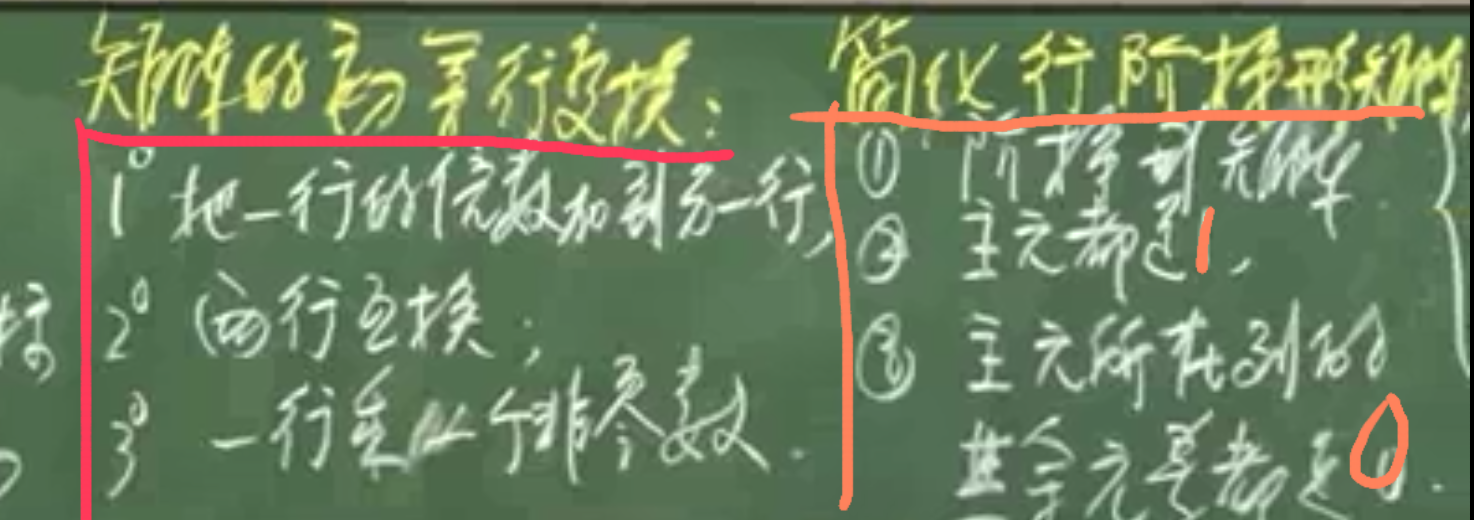 矩阵的初等行变换:
1° 把一行的倍数加到另一行,
2° 两行互换;
3° 一行乘以个非零数.
简化行阶梯形矩阵
① 阶梯型矩阵
② 主元都是1,
③ 主元所在列的
其余元素都是0.